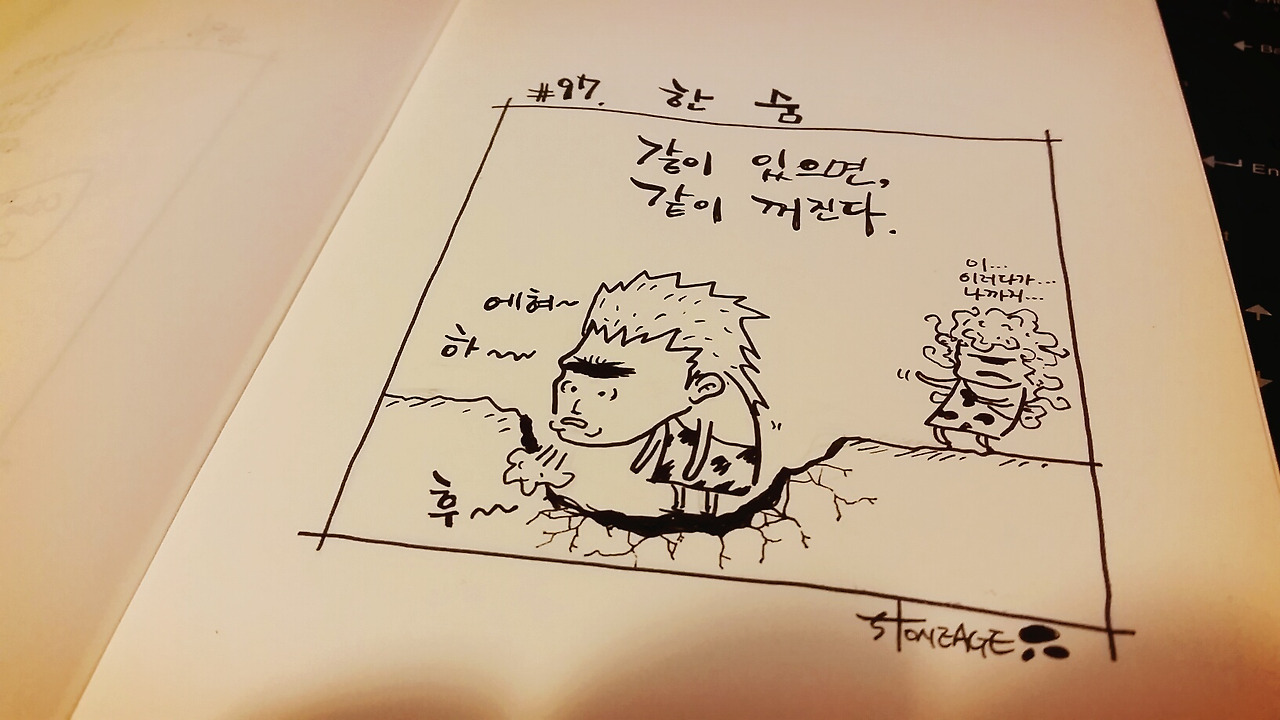 #97. 한 숨
같이 있으면,
같이 꺼진다.
이...
이러다가...
나까지...
에혀~
하~~
후~~
STONEAGE
En